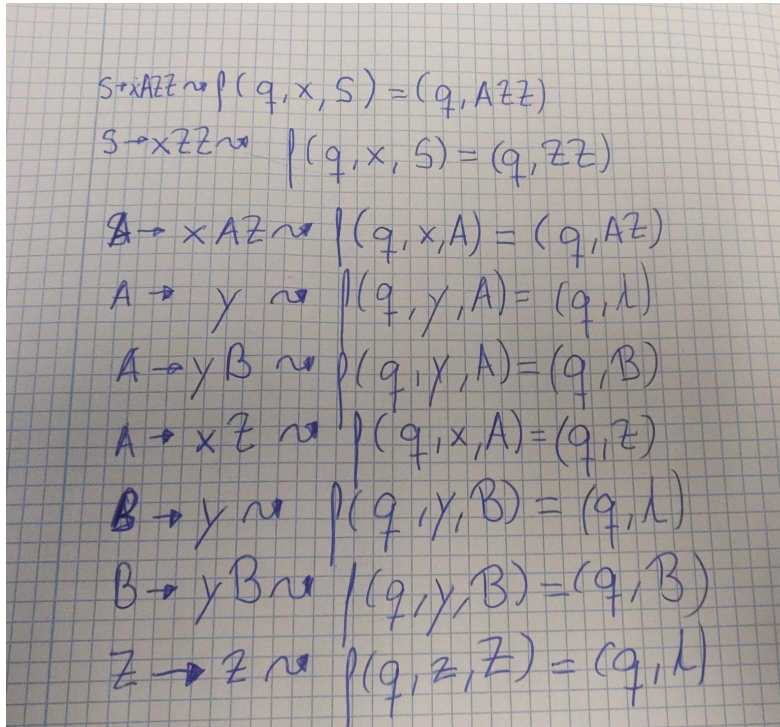 S→xAZZ ⇝ f(q, x, S) = (q, AZZ)
S→xZZ ⇝ f(q, x, S) = (q, ZZ)
A→ xAZ ⇝ f(q, x, A) = (q, AZ)
A → y ⇝ f(q, y, A) = (q, λ)
A → yB ⇝ f(q, y, A) = (q, B)
A → xZ ⇝ f(q, x, A) = (q, Z)
B → y ⇝ f(q, y, B) = (q, λ)
B → yB ⇝ f(q, y, B) = (q, B)
Z → z ⇝ f(q, z, Z) = (q, λ)